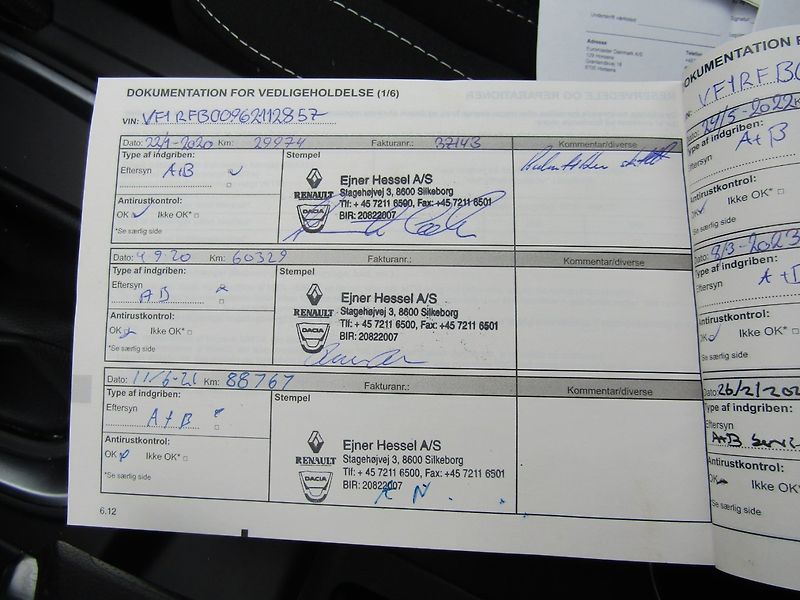 Underskrift værksted:
Adresse
Euromaster Danmark A/S
8700 Horsens
DOKUMENTATION FOR VEDLIGEHOLDELSE (1/6)
VIN: VF1RFB00962112857
Dato: 22/1-2020 Km: 29974 Fakturanr.: 37143 Kommentar/diverse
Type af indgriben:
Eftersyn A+B
Stempel
RENAULT
DACIA
Ejner Hessel A/S
Stagehøjvej 3, 8600 Silkeborg
Tlf: + 45 7211 6500, Fax: +45 7211 6501
BIR: 20822007
Antirustkontrol:
OK Ikke OK*
*Se særlig side
Dato: 4 9 20 Km: 60329 Fakturanr.: Kommentar/diverse
Type af indgriben:
Eftersyn AB
Stempel
RENAULT
DACIA
Ejner Hessel A/S
Stagehøjvej 3, 8600 Silkeborg
Tlf: + 45 7211 6500, Fax: +45 7211 6501
BIR: 20822007
Antirustkontrol:
OK Ikke OK*
*Se særlig side
Dato: 11/6-21 Km: 88767 Fakturanr.: Kommentar/diverse
Type af indgriben:
Eftersyn A+B
Stempel
RENAULT
DACIA
Ejner Hessel A/S
Stagehøjvej 3, 8600 Silkeborg
Tlf: + 45 7211 6500, Fax: +45 7211 6501
BIR: 20822007
KN
Antirustkontrol:
OK Ikke OK*
*Se særlig side
6.12
DOKUMENTATION F
VF1RFB0
Dato: 24/5-2022
Type af indgriben:
Eftersyn A+B
Antirustkontrol:
OK Ikke OK*
*Se særlig side
Dato: 8/3-2023
Type af indgriben:
Eftersyn A+
Antirustkontrol:
OK Ikke OK*
*Se særlig side
Dato: 26/2/202
Type af indgriben:
Eftersyn
A+B Servi
Antirustkontrol:
OK Ikke OK*
*Se særlig side